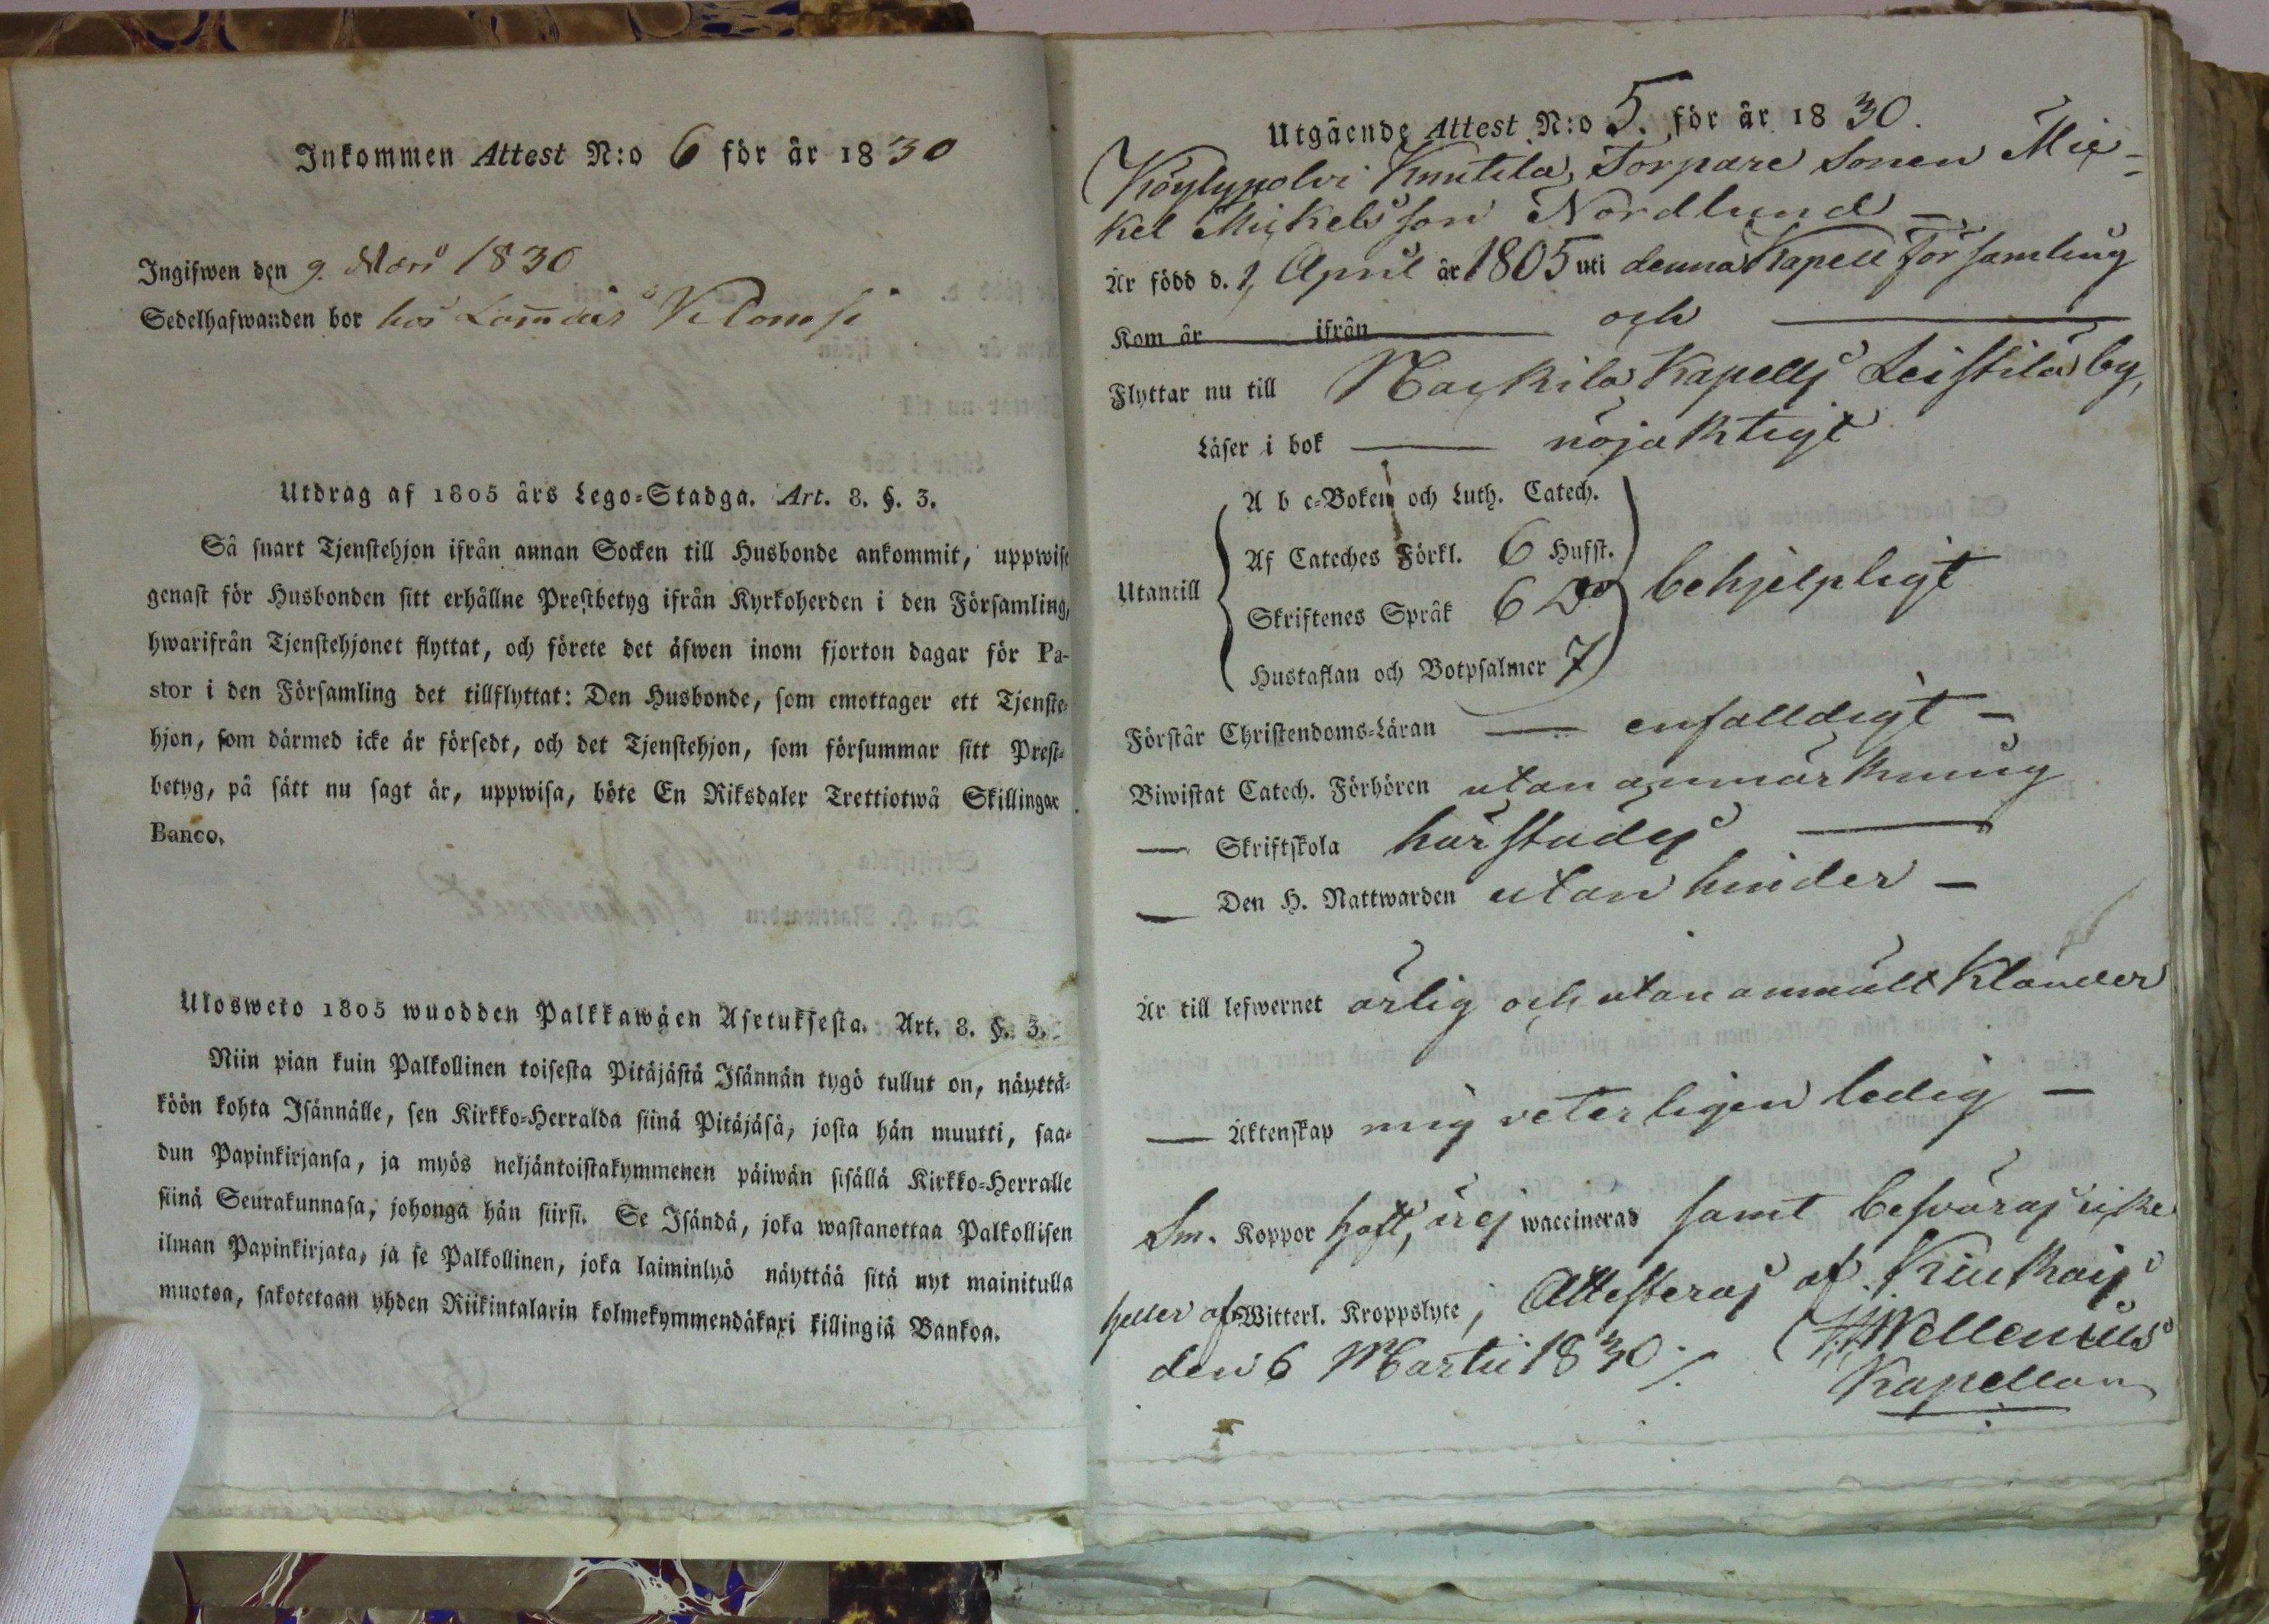 Inkommen Attest N:o 6 för år 1830
Ingifwen den 9 Mars 1830
Sedelhafwanden bor hos
Utdrag af 1805 års Lego-Stadga. Art. 8. §. 3.
Så snart Tjenstehjon ifrån annan Socken till Husbonde ankommit, uppwise
genast för Husbonden sitt erhållne Prestbetyg ifrån Kyrkoherden i den Församling,
hwarifrån Tjenstehjonet flyttat, och förete det äfwen inom fjorton dagar för Pa-
stor i den Församling det tillflyttat: Den Husbonde, som emottager ett Tjenste-
hjon, som därmed icke är försedt, och det Tjenstehjon, som försummar sitt Prest-
betyg, på sätt nu sagt är, uppwisa, böte En Riksdaler Trettiotwå Skillingar
Banco.
Ulosweto 1805 wuodden Palkkawäen Asetuksesta. Art. 8. §. 3.
Niin pian kuin Palkollinen toisesta Pitäjästä Isännän tygö tullut on, näyttä-
köön kohta Isännälle, sen Kirkko-Herralda siinä Pitäjäsä, josta hän muutti, saa-
dun Papinkirjansa, ja myös neljäntoistakymmenen päiwän sisällä Kirkko-Herralle
siinä Seurakunnasa, johonga hän siirsi. Se Isändä, joka wastanottaa Palkollisen
ilman Papinkirjata, ja se Palkollinen, joka laiminlyö näyttää sitä nyt mainitulla
muotoa, sakotetaan yhden Riikintalarin kolmekymmendäkaxi killingiä Bankoa.
Utgående Attest N:o 5. för år 1830.
Köylypolvi Knutila, Torpare Sonen Mic-
kel Mickelsson Nordlund –
Är född d. 1 April år 1805 uti denna Kapell Församling
Kom år ifrån och
Flyttar nu till Nackila Kapells Leistila by,
Läser i bok — nöjaktigt
A b c-Boken och Luth. Catech.
Af Cateches Förkl. 6 Hufst.
Utantill behjelpligt
Skriftenes Språk 6 Do
Hustaflan och Botpsalmer 7
Förstår Christendoms-Läran — enfalldigt –
Biwistat Catech. Förhören utan anmärkning
— Skriftskola härstädes —
— Den H. Nattwarden utan hinder –
Är till lefwernet ärlig och utan anmält klander
— Äktenskap mig veterligen ledig –
Sm. Koppor haft, är ej waccinerad samt besväras icke
heller af Witterl. Kroppslyte, Attesteras af Kiukais
den 6 Martii 1830. Wellenius
Kapellan